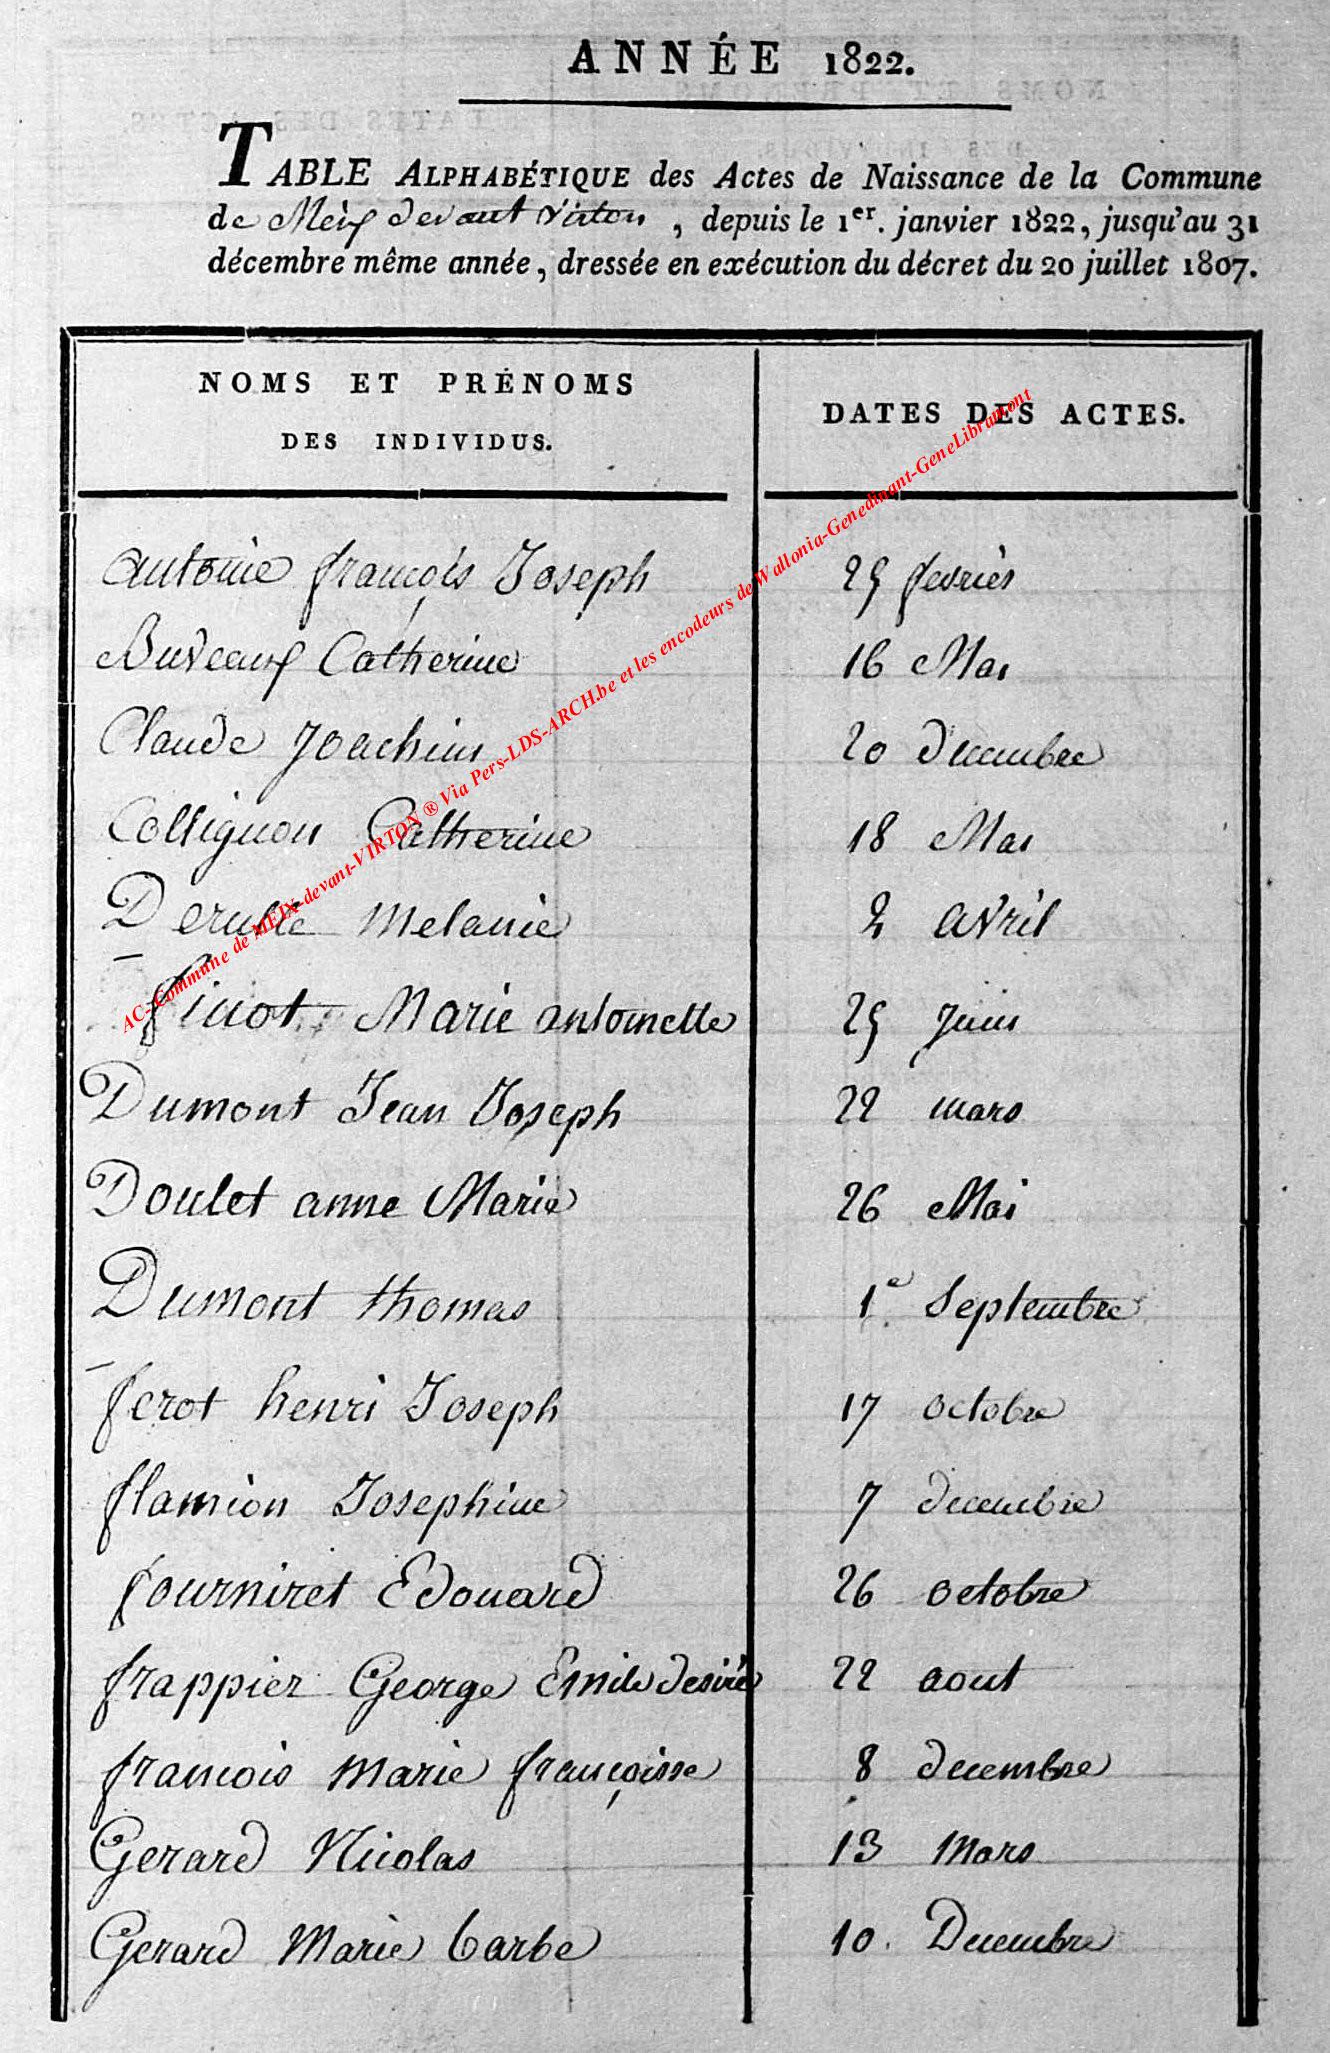 ANNÉE 1822.
TABLE ALPHABÉTIQUE des Actes de Naissance de la Commune
de Meix devant Virton, depuis le 1er. janvier 1822, jusqu'au 31
décembre même année, dressée en exécution du décret du 20 juillet 1807.
NOMS ET PRÉNOMS
DES INDIVIDUS.
DATES DES ACTES.
AC-Commune de MEIX-devant-VIRTON ® Via Pers-LDS-ARCH.be et les encodeurs de Wallonia-Genedinant-GeneLibramont
Antoine françois Joseph 25 fevrier
Buveaux Catherine 16 Mai
Claude Joachim 20 decembre
Collignon Catherine 18 Mai
Derulle Melanie 2 avril
finot Marie antoinette 25 Juin
Dumont Jean Joseph 22 mars
Doulet anne Marie 26 Mai
Dumont thomas 1e Septembre
ferot henri Joseph 17 octobre
flamion Josephine 7 decembre
fourniret Edouard 26 octobre
frappier George Emile desiré 22 aout
francois marie françoisse 8 decembre
Gerard Nicolas 13 Mars
Gerard Marie barbe 10. Decembre